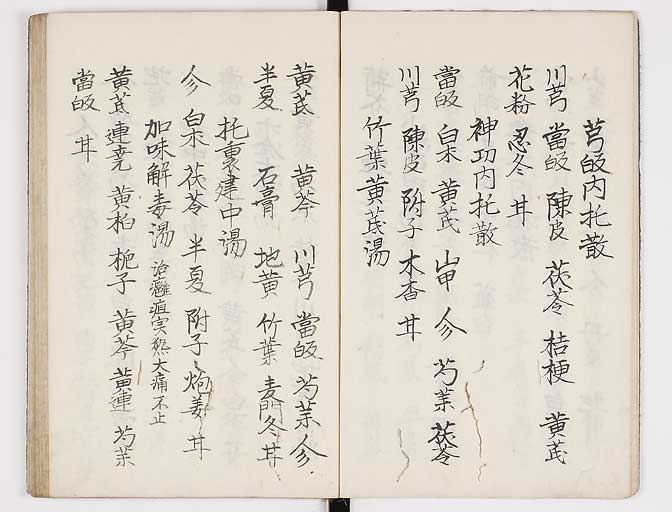 芎皈内托散
川芎 當皈 陳皮 茯苓 桔梗 黄芪
花粉 忍冬 甘
神功内托散
當皈 白朮 黄芪 山甲 参 芍薬 茯苓
川芎 陳皮 附子 木香 甘
竹葉黄芪湯
黄芪 黄芩 川芎 當皈 芍薬 参
半夏 石膏 地黄 竹葉 麦門冬 甘
托裏建中湯
参 白朮 茯苓 半夏 附子 炮姜 甘
加味解毒湯 治癰疽実熱大痛不止
黄芪 連堯 黄柏 梔子 黄芩 黄連 芍薬
當皈 甘